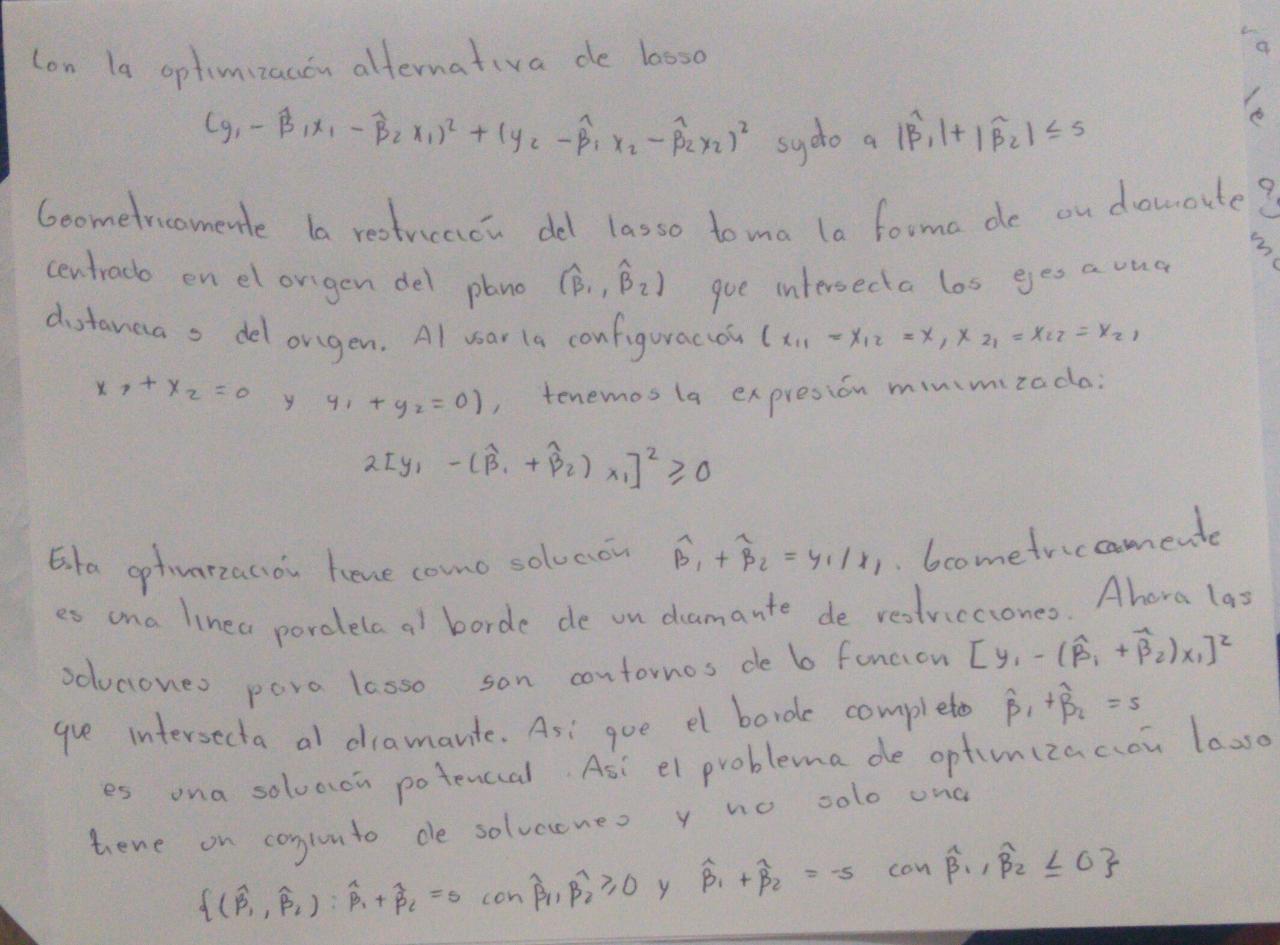 Con la optimización alternativa de lasso
(y₁ - β̂₁x₁ - β̂₂x₁)² + (y₂ - β̂₁x₂ - β̂₂x₂)² sujeto a |β̂₁| + |β̂₂| ≤ s
Geometricamente la restricción del lasso toma la forma de un diamante
centrado en el origen del plano (β̂₁, β̂₂) que intersecta los ejes a una
distancia s del origen. Al usar la configuración (x₁₁ = x₁₂ = x, x₂₁ = x₂₂ = x₂,
x₁ + x₂ = 0 y y₁ + y₂ = 0), tenemos la expresión minimizada:
2[y₁ - (β̂₁ + β̂₂) x₁]² ≥ 0
Esta optimización tiene como solución β̂₁ + β̂₂ = y₁/x₁. Geometricamente
es una linea paralela al borde de un diamante de restricciones. Ahora las
soluciones para lasso son contornos de la funcion [y₁ - (β̂₁ + β̂₂)x₁]²
que intersecta al diamante. Así que el borde completo β̂₁ + β̂₂ = s
es una solución potencial. Así el problema de optimización lasso
tiene un conjunto de soluciones y no solo una
{(β̂₁, β̂₂) : β̂₁ + β̂₂ = s con β̂₁, β̂₂ ≥ 0 y β̂₁ + β̂₂ = -s con β̂₁, β̂₂ ≤ 0}